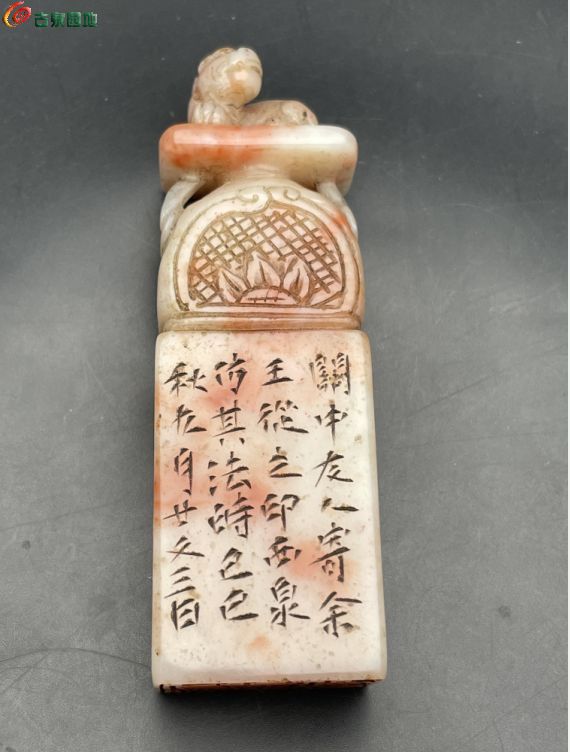 古泉园地
關中友人寄余
王從之印西泉
仿其法時己巳
秋九月廿又三日